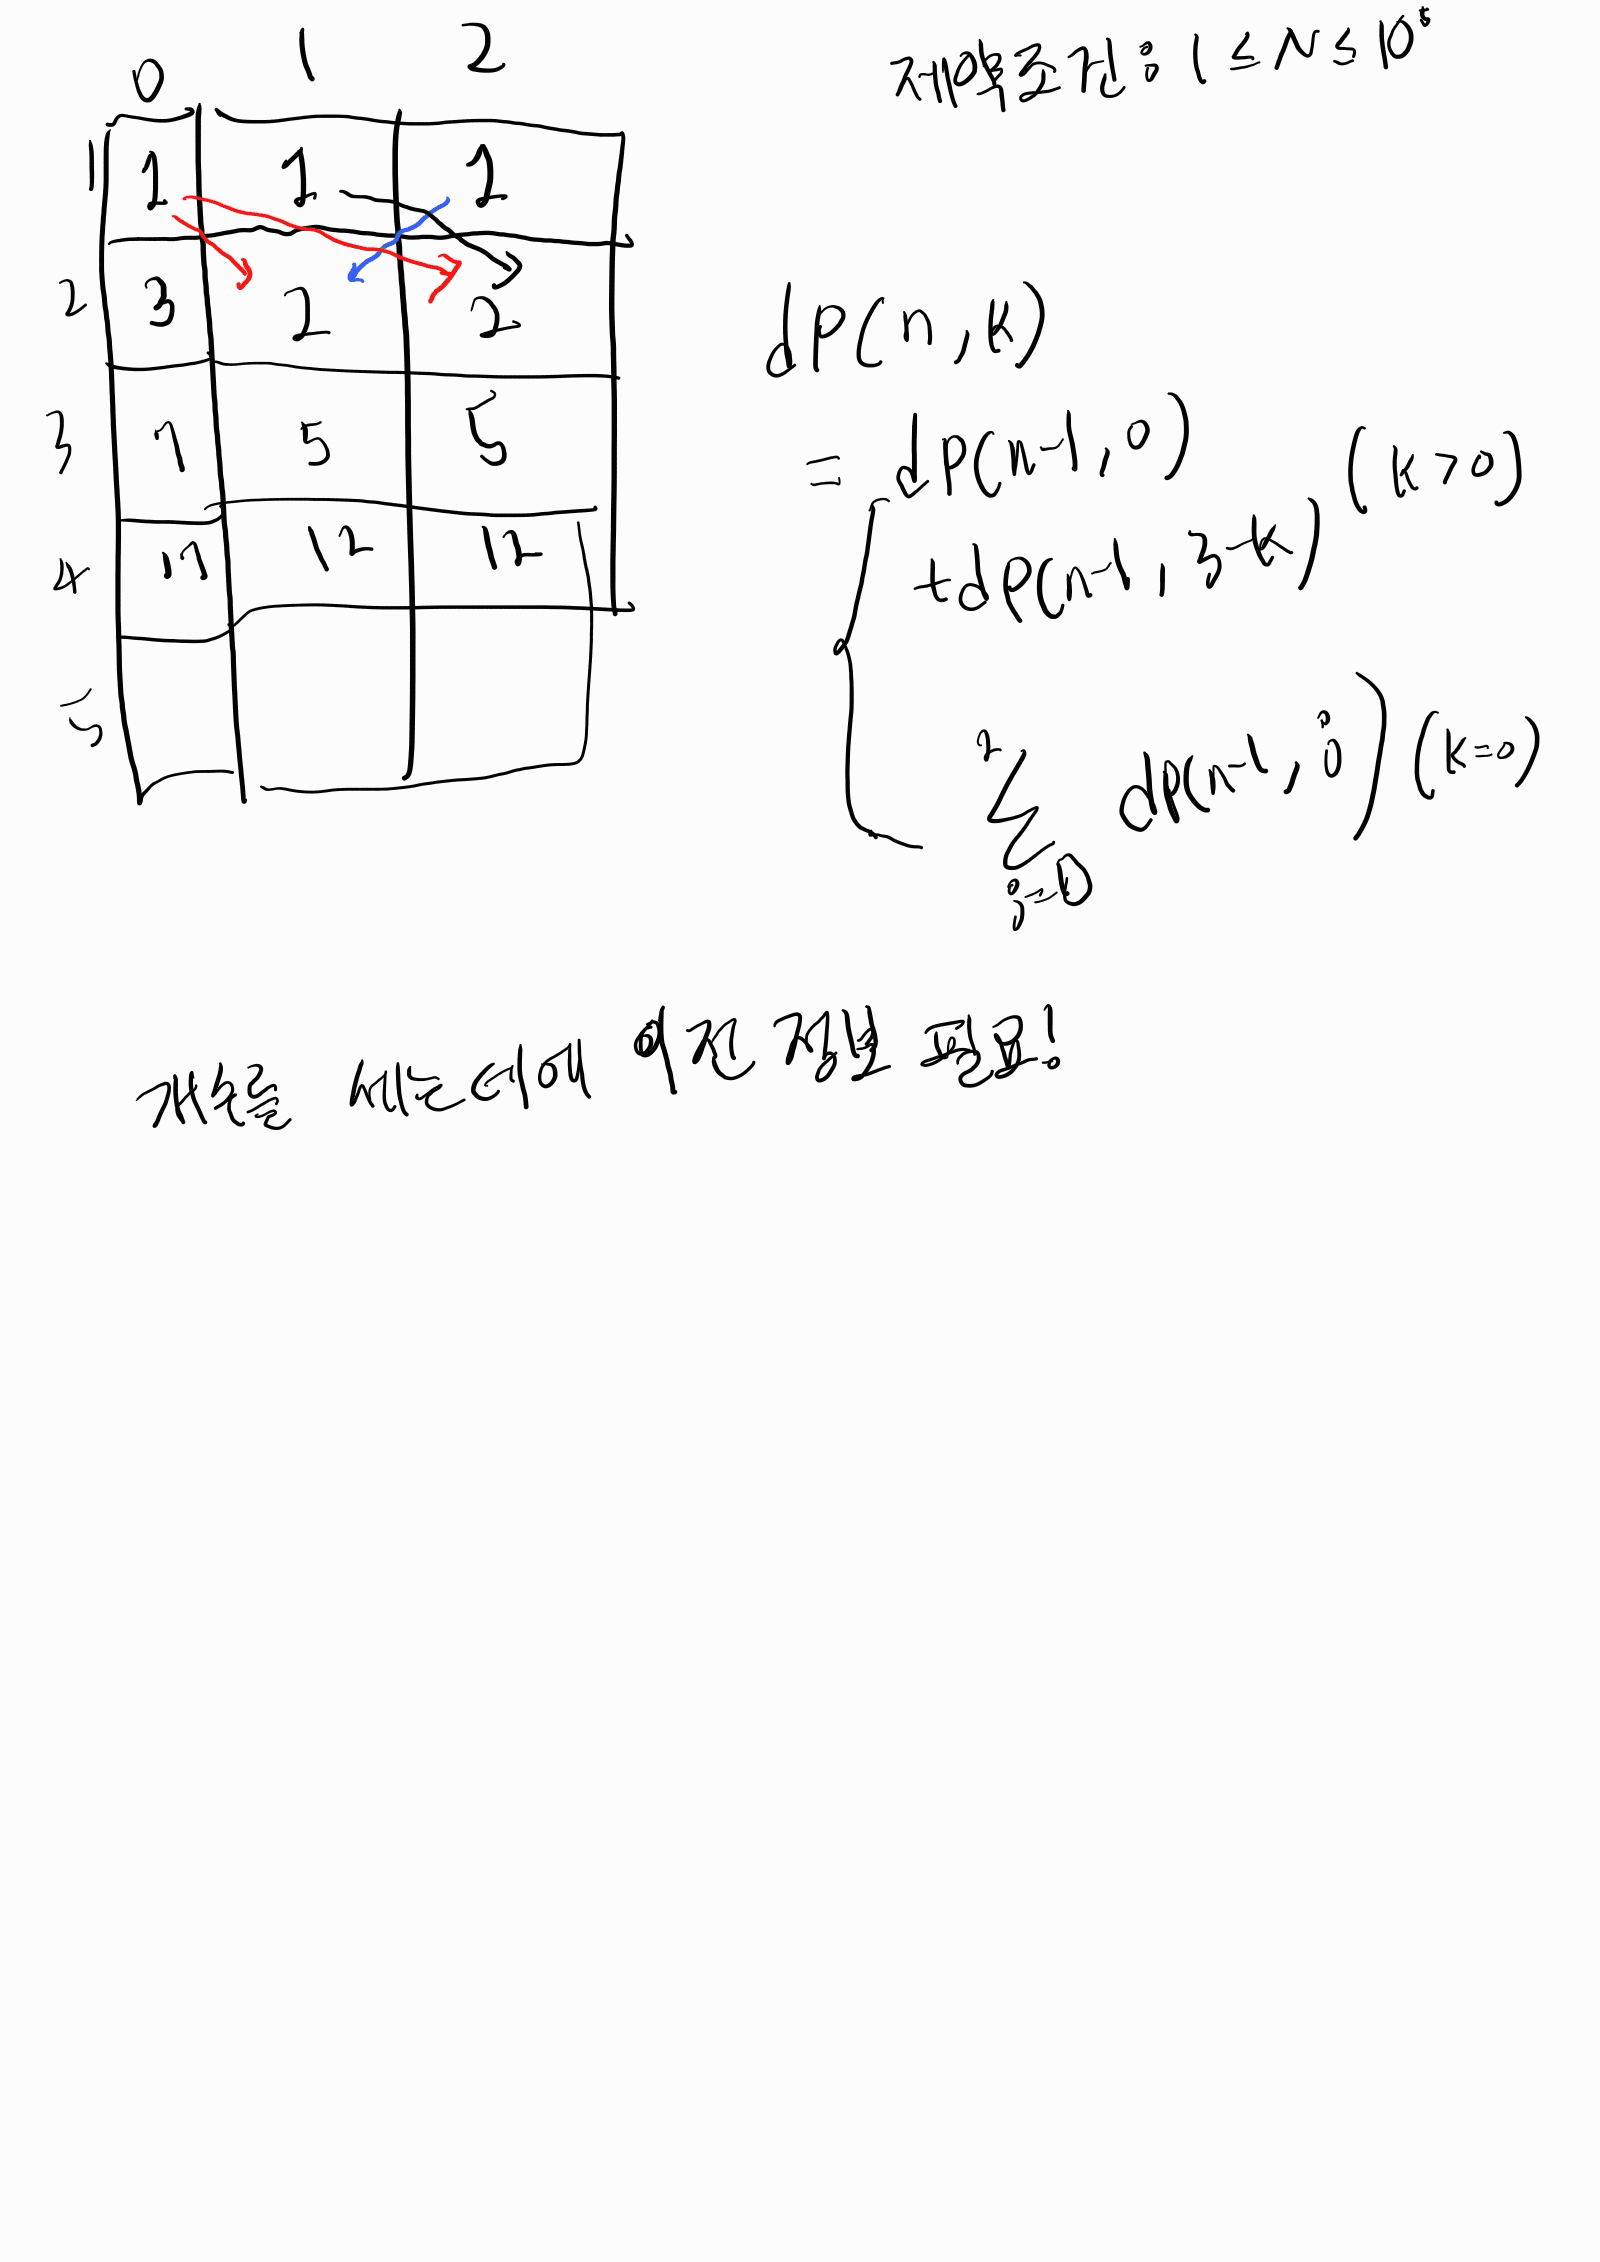 0 1 2
제약조건: 1 ≤ N ≤ 10⁵
1 1 1 1
2 3 2 2
3 7 5 5
4 17 12 12
5
dp(n, k)
= dp(n-1, 0)
+dp(n-1, 3-k) (k>0)
2
∑ dp(n-1, i) (k=0)
i=0
개수를 세는데에 이전 정보 필요!